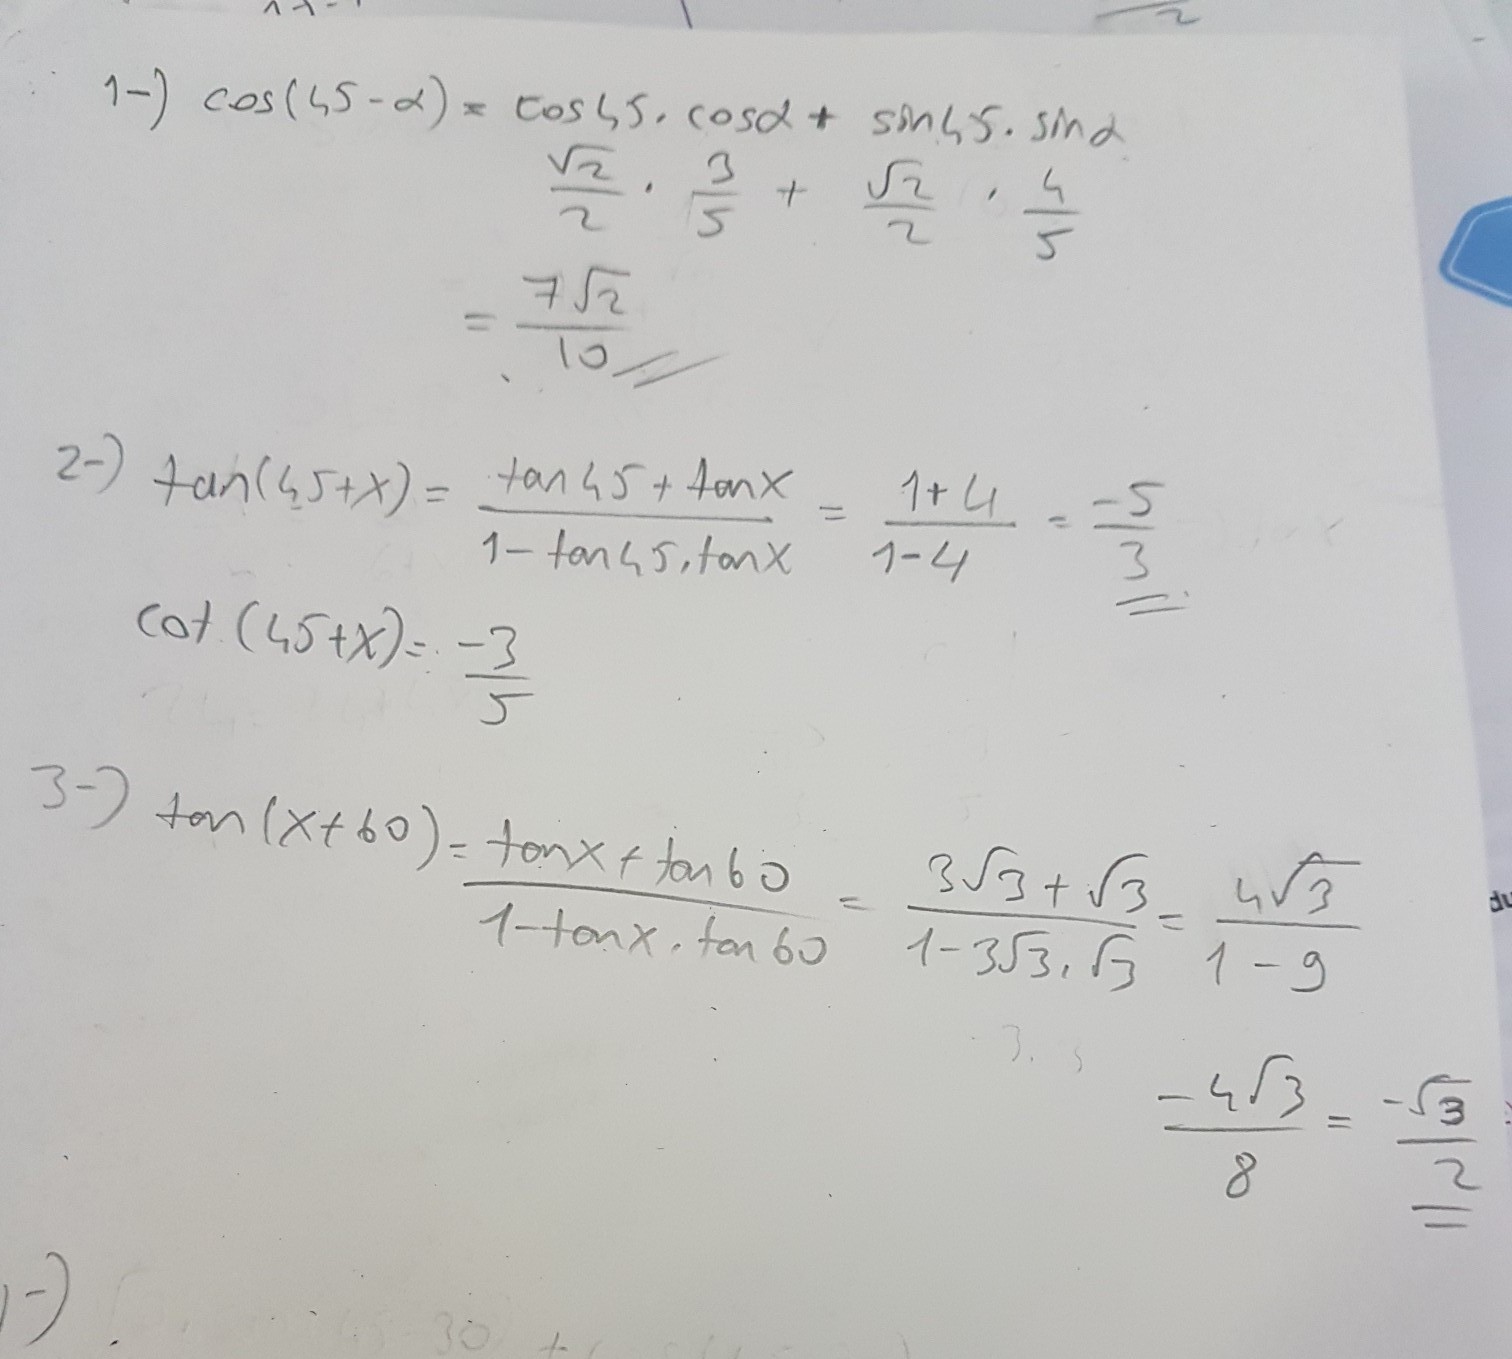 1-) cos(45-α) = cos45. cosα + sin45. sinα
√2/2 . 3/5 + √2/2 . 4/5
= 7√2/10
2-) tan(45+x) = tan45+tanx/1-tan45.tanx = 1+4/1-4 = -5/3
cot (45+x) = -3/5
3-) tan(x+60) = tanx+tan60/1-tanx.tan60 = 3√3+√3/1-3√3.√3 = 4√3/1-9
-4√3/8 = -√3/2
30 +
du